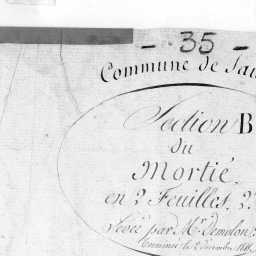 - 35 -
Commune de Sai
Section B
du
Mortié
en 2 Feuilles. 2
Levée par Mr. Demolon
Terminée le 2 décembre